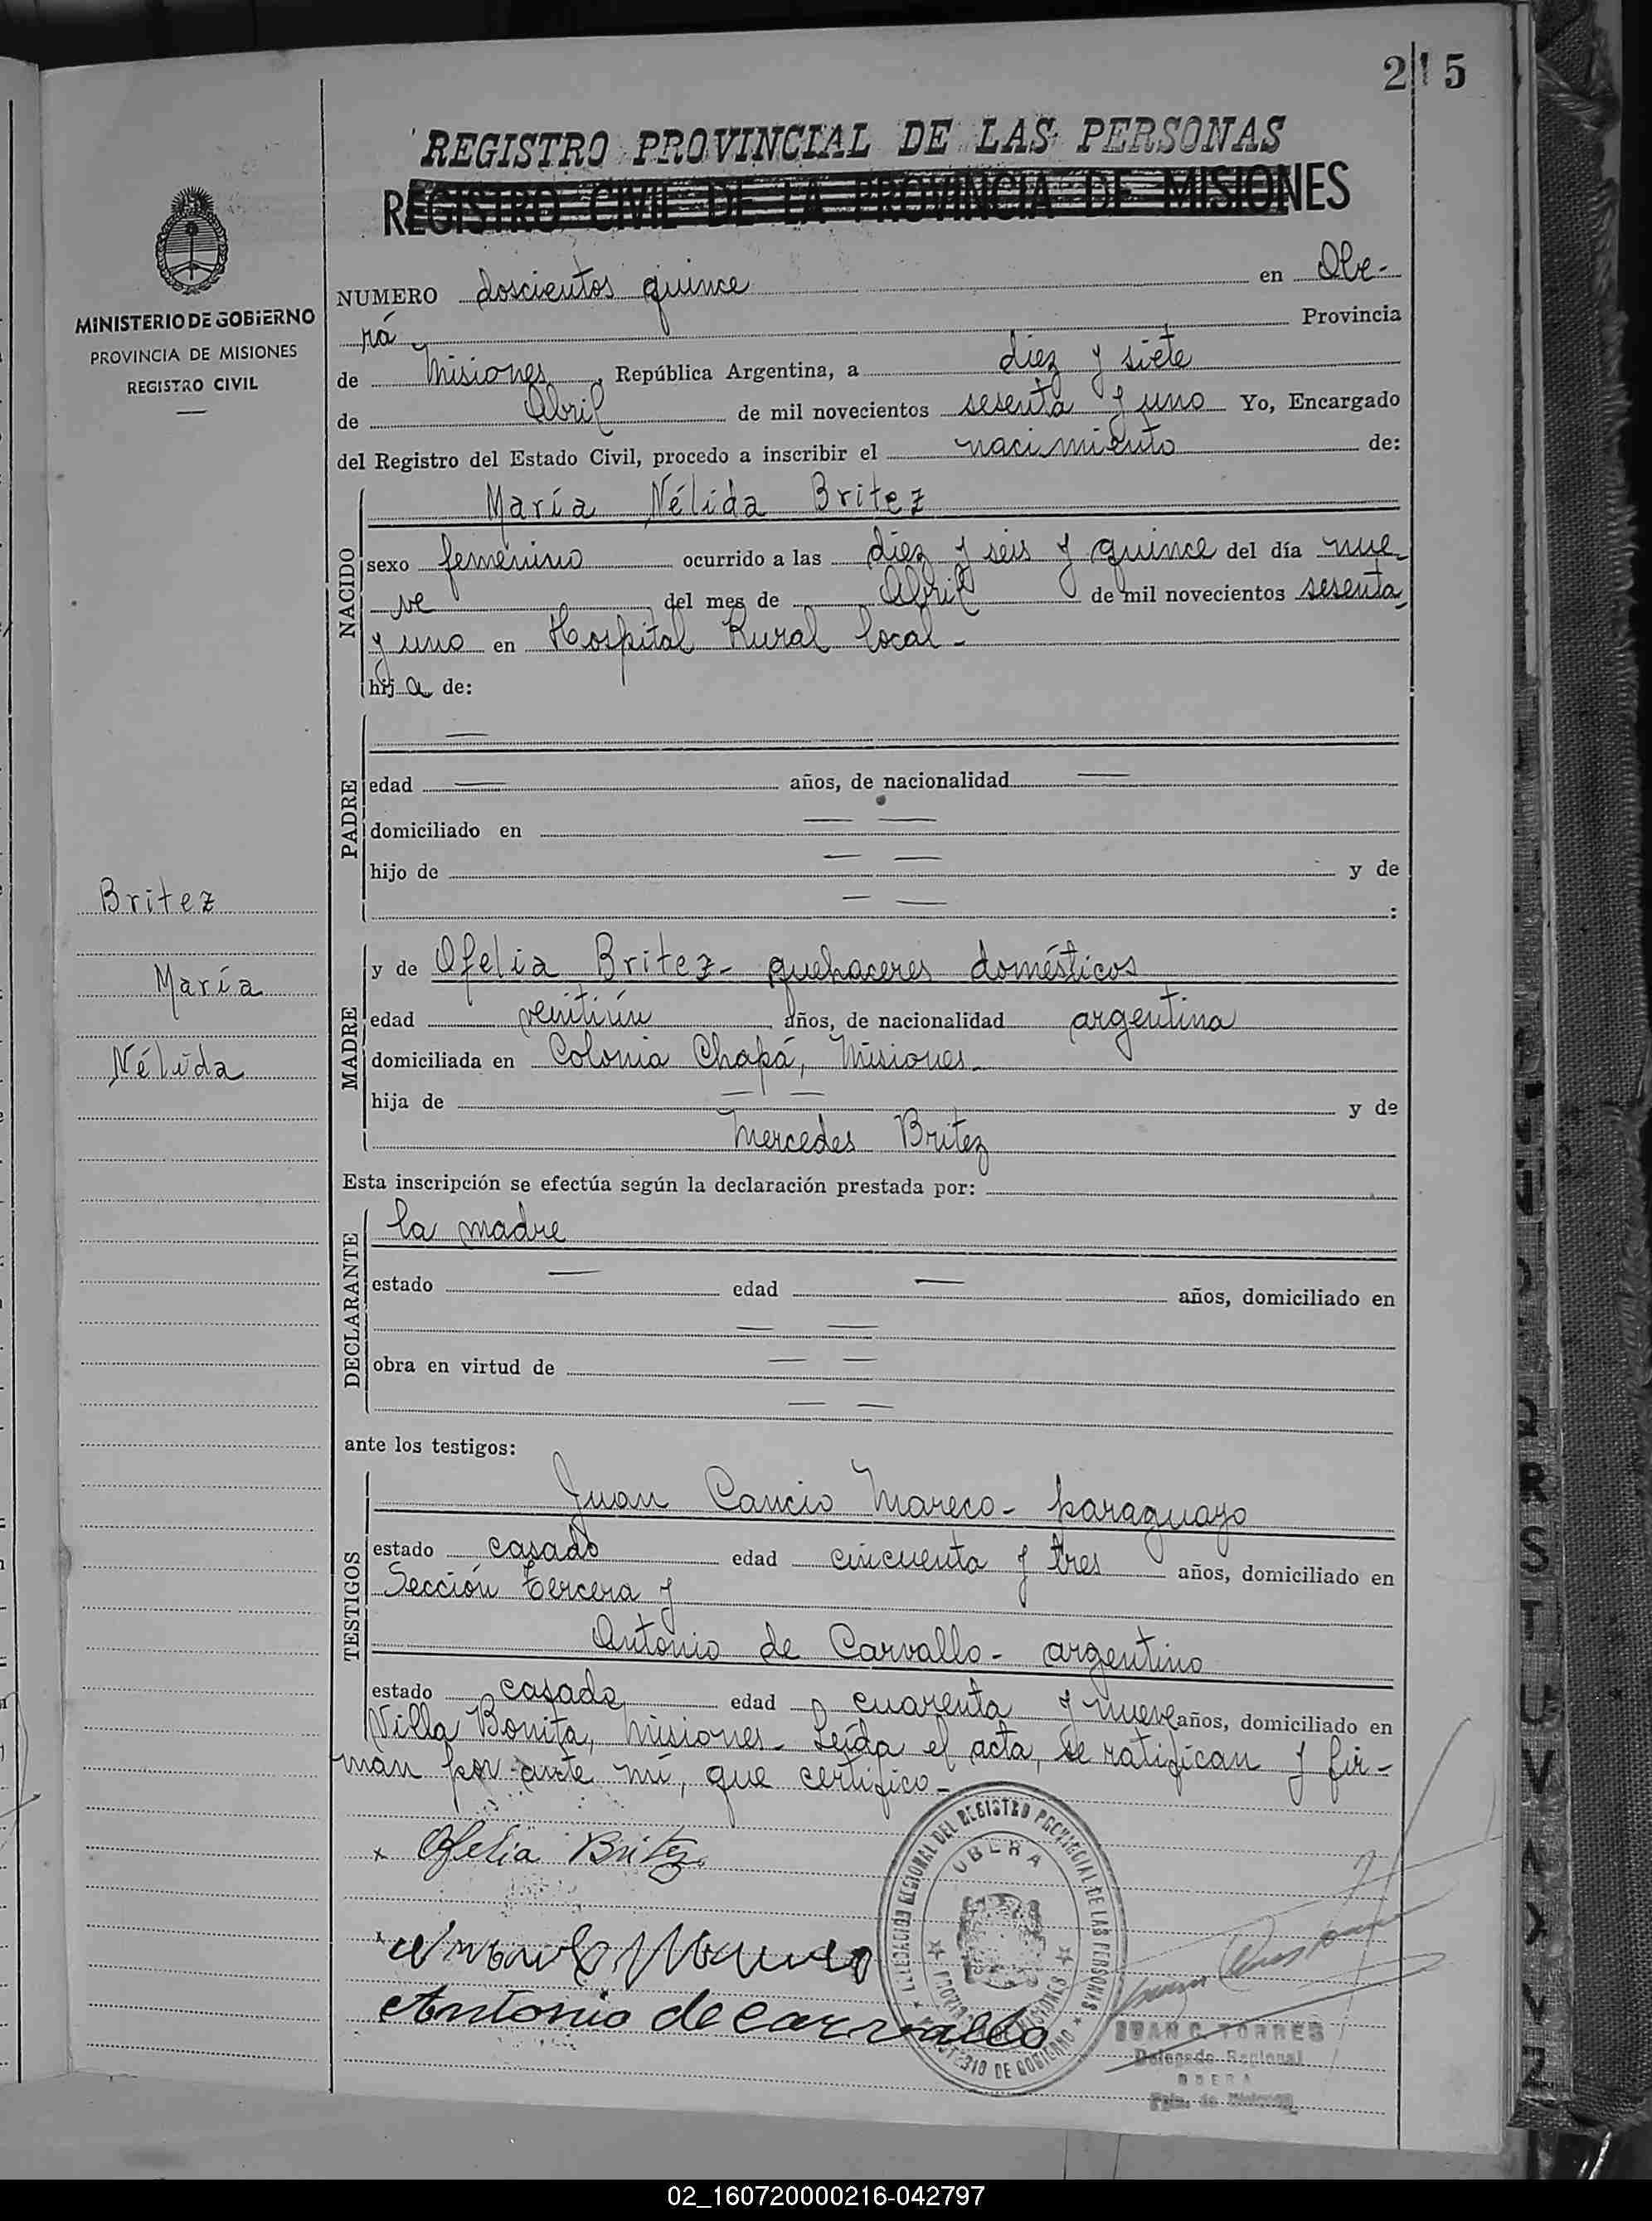 215
REGISTRO PROVINCIAL DE LAS PERSONAS
REGISTRO CIVIL DE LA PROVINCIA DE MISIONES
MINISTERIO DE GOBIERNO
PROVINCIA DE MISIONES
REGISTRO CIVIL
NUMERO doscientos quince en Obe-
rá Provincia
de Misiones, República Argentina, a diez y siete
de Abril de mil novecientos sesenta y uno Yo, Encargado
del Registro del Estado Civil, procedo a inscribir el nacimiento de:
María Nélida Britez
NACIDO
sexo femenino ocurrido a las diez y seis y quince del día nue-
ve del mes de Abril de mil novecientos sesenta
y uno en Hospital Rural local-
hija de:
PADRE
edad años, de nacionalidad
domiciliado en
hijo de y de
:
Britez
María
Nélida
MADRE
y de Ofelia Britez- quehaceres domésticos
edad venitiún años, de nacionalidad argentina
domiciliada en Colonia Chapá, Misiones-
hija de y de
Mercedes Britez
Esta inscripción se efectúa según la declaración prestada por:
DECLARANTE
la madre
estado edad años, domiciliado en
obra en virtud de
ante los testigos:
TESTIGOS
Juan Cancio Mareco- paraguayo
estado casado edad cincuenta y tres años, domiciliado en
Sección tercera y
Antonio de Carvallo- argentino
estado casado edad cuarenta y nueve años, domiciliado en
Villa Bonita, Misiones- Leída el acta, se ratifican y fir-
man por ante mí, que certifico-
x Ofelia Britez
Antonio de Carvallo
DELEGACION REGIONAL DEL REGISTRO PROVINCIAL DE LAS PERSONAS
OBERA
PROVINCIA DE MISIONES
MINISTERIO DE GOBIERNO
JUAN C. TORRES
Delegado Regional
OBERA
Pcia. de Misiones
02_160720000216-042797